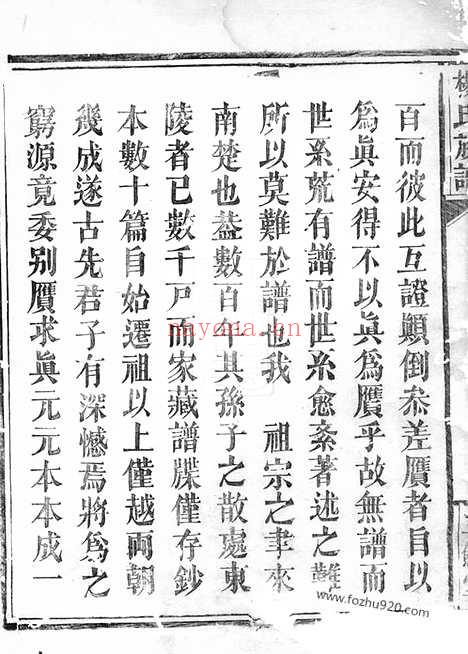 楊氏族譜
百而彼此互證顛倒叅差贋者自以
爲眞安得不以眞爲贋乎故無譜而
世系荒有譜而世系愈紊著述之難
所以莫難於譜也我 祖宗之聿來
南楚也葢數百年其孫子之散處東
陵者已數千戸而家藏譜牒僅存鈔
本數十篇自始遷祖以上僅越両朝
幾成遂古先君子有深憾焉將爲之
窮源竟委别贋求眞元元本本成一
nayona.cn
www.fozhu920.com